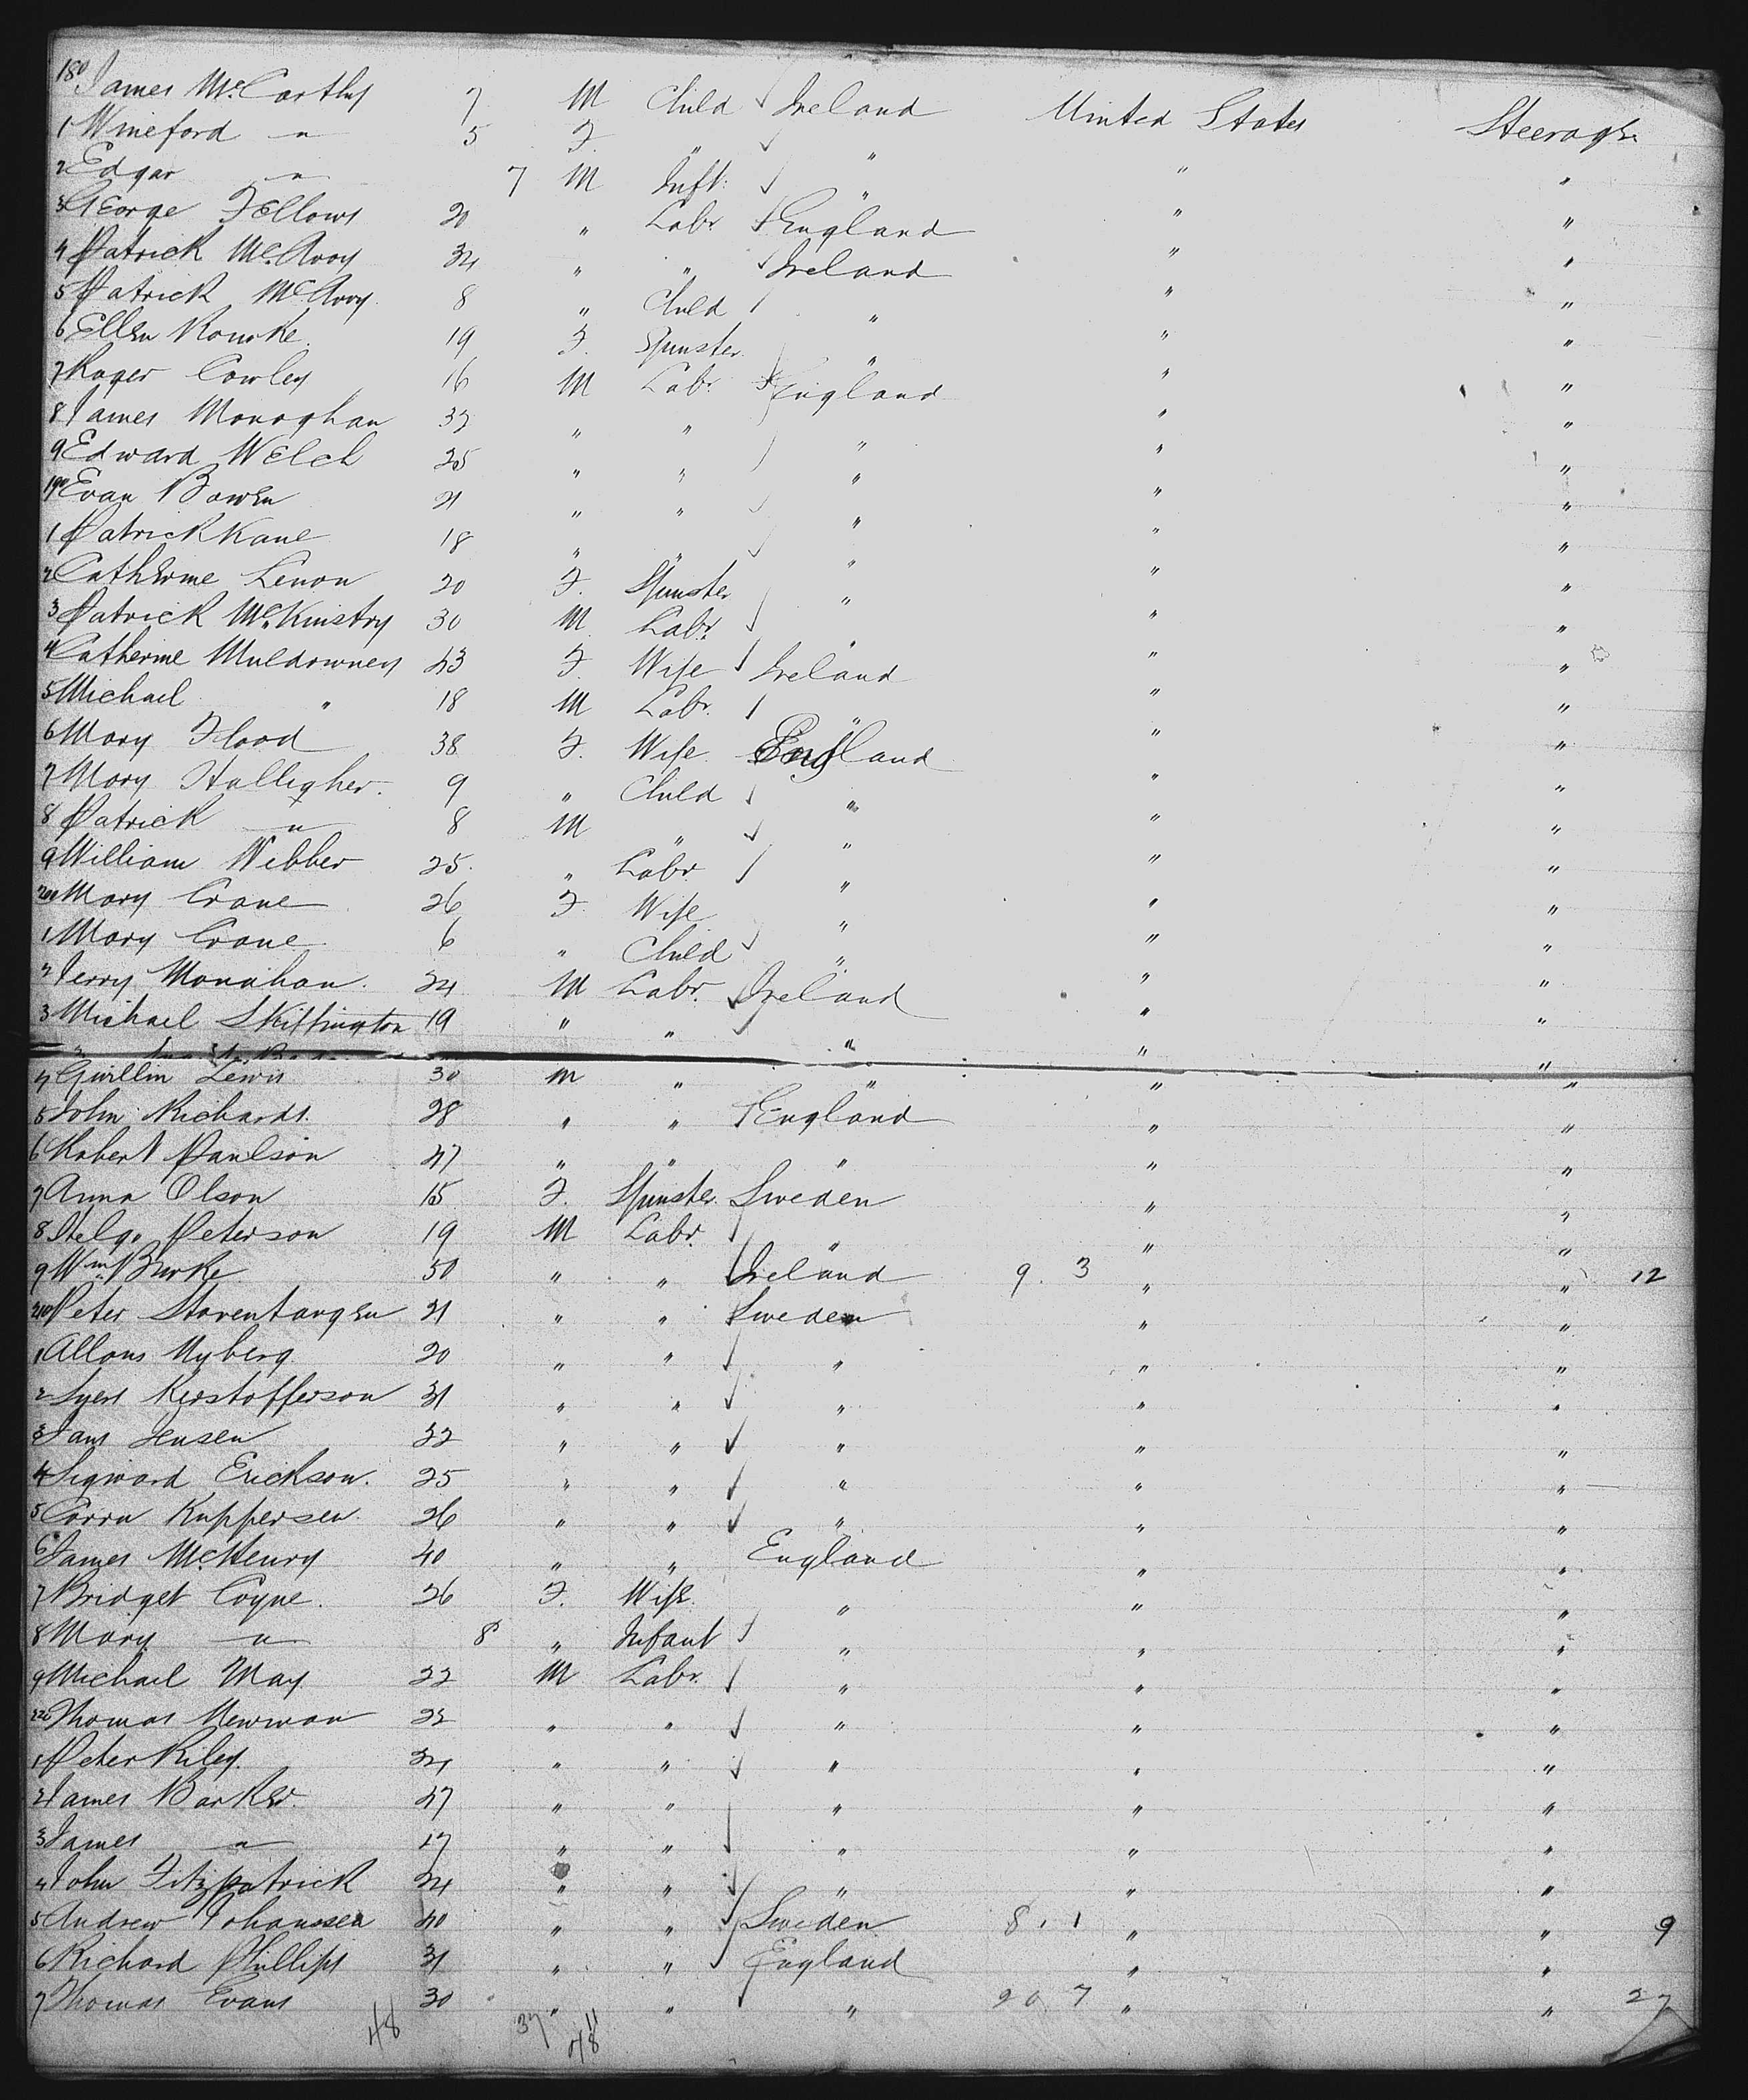 180 James McCarthy 7 M Child Ireland United States Steerage
1 Wineford " 5 F. " " " "
2 Edgar " 7 M Inft. " " "
3 George Fellows 20 " Labr England " "
4 Patrick McAvoy 34 " " Ireland " "
5 Patrick McAvoy 8 " Child " " "
6 Ellen Rourke 19 F. Spinster " " "
7 Roger Cowley 16 M Labr. England " "
8 James Monoghan 37 " " " " "
9 Edward Welch 25 " " " " "
190 Evan Bowen 21 " " " " "
1 Patrick Kane 18 " " " " "
2 Catherine Lenon 20 F. Spinster " " "
3 Patrick McKinstry 30 M Labr. " " "
4 Catherine Muldowney 43 F. Wife Ireland " "
5 Michael " 18 M Labr. " " "
6 Mary Flood 38 F. Wife England " "
7 Mary Hallegher 9 " Child " " "
8 Patrick " 8 M " " " "
9 William Webber 25 " Labr " " "
200 Mary Crane 26 F. Wife " " "
1 Mary Crane 6 " Child " " "
2 Jerry Monahan 24 M Labr. Ireland " "
3 Michael Skiffington 19 " " " " "
4 Gwillim Lewis 30 M " " " "
5 John Richards 28 " " England " "
6 Robert Paulson 27 " " " " "
7 Anna Olson 15 F. Spinster Sweden " "
8 Helge Peterson 19 M Labr. " " "
9 Wm Burke 50 " " Ireland 9. 3 " " 12
210 Peter Storentangen 21 " " Sweden " "
1 Allons Nyberg 20 " " " " "
2 Syers Kerstofferson 31 " " " " "
3 Jans Jensen 22 " " " " "
4 Sigward Erickson. 25 " " " " "
5 Corrn Kuppersen 26 " " " " "
6 James McHenry 40 " " England " "
7 Bridget Coyne. 26 F. Wife. " " "
8 Mary " 8 " Infant " " "
9 Michael May 22 M Labr. " " "
220 Thomas Newman 22 " " " " "
1 Peter Riley. 34 " " " " "
2 James Barker. 47 " " " " "
3 James " 17 " " " " "
4 John Fitzpatrick 24 " " " " "
5 Andrew Johanssen 40 " " Sweden 8. 1 " " 9
6 Richard Phillips 31 " " England " "
7 Thomas Evans 30 " " " 20. 7 " " 27
48 37 11
48